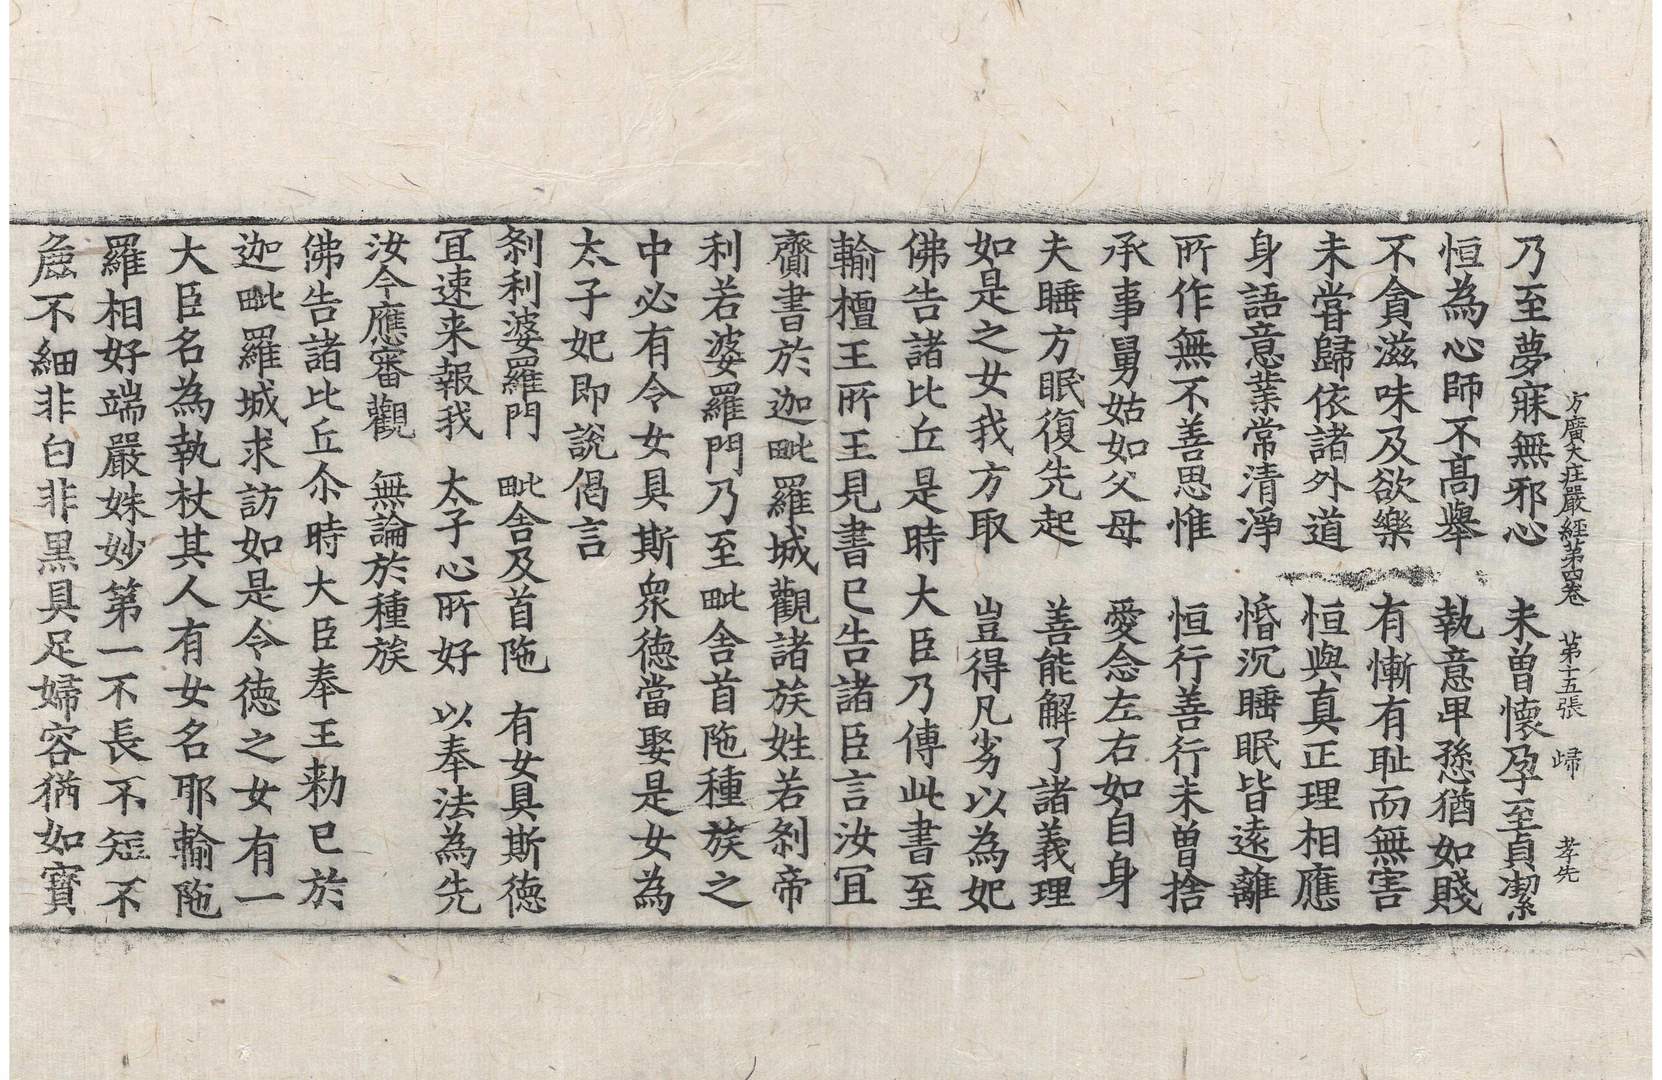 方廣大庄嚴經第四卷　第十五張　歸　孝先
乃至夢寐無邪心　未曽懷孕至貞潔
恒為心師不髙舉　執意卑愻猶如賤
不貪滋味及欲樂　有慚有耻而無害
未甞歸依諸外道　恒與真正理相應
身語意業常清淨　惛沉睡眠皆遠離
所作無不善思惟　恒行善行未曽捨
承事舅姑如父母　愛念左右如自身
夫睡方眠復先起　善能解了諸義理
如是之女我方取　豈得凡劣以為妃
佛告諸比丘是時大臣乃傳此書至
輸檀王所王見書已告諸臣言汝冝
齎書於迦毗羅城觀諸族姓若剎帝
利若婆羅門乃至毗舍首陁種族之
中必有令女具斯衆徳當娶是女為
太子妃即說偈言
剎利婆羅門　毗舍及首陁　有女具斯徳
冝速来報我　太子心所好　以奉法為先
汝今應審觀　無論於種族
佛告諸比丘尒時大臣奉王勑已於
迦毗羅城求訪如是令徳之女有一
大臣名為執杖其人有女名耶輸陁
羅相好端嚴姝妙第一不長不短不
麁不細非白非黒具足婦容猶如寳